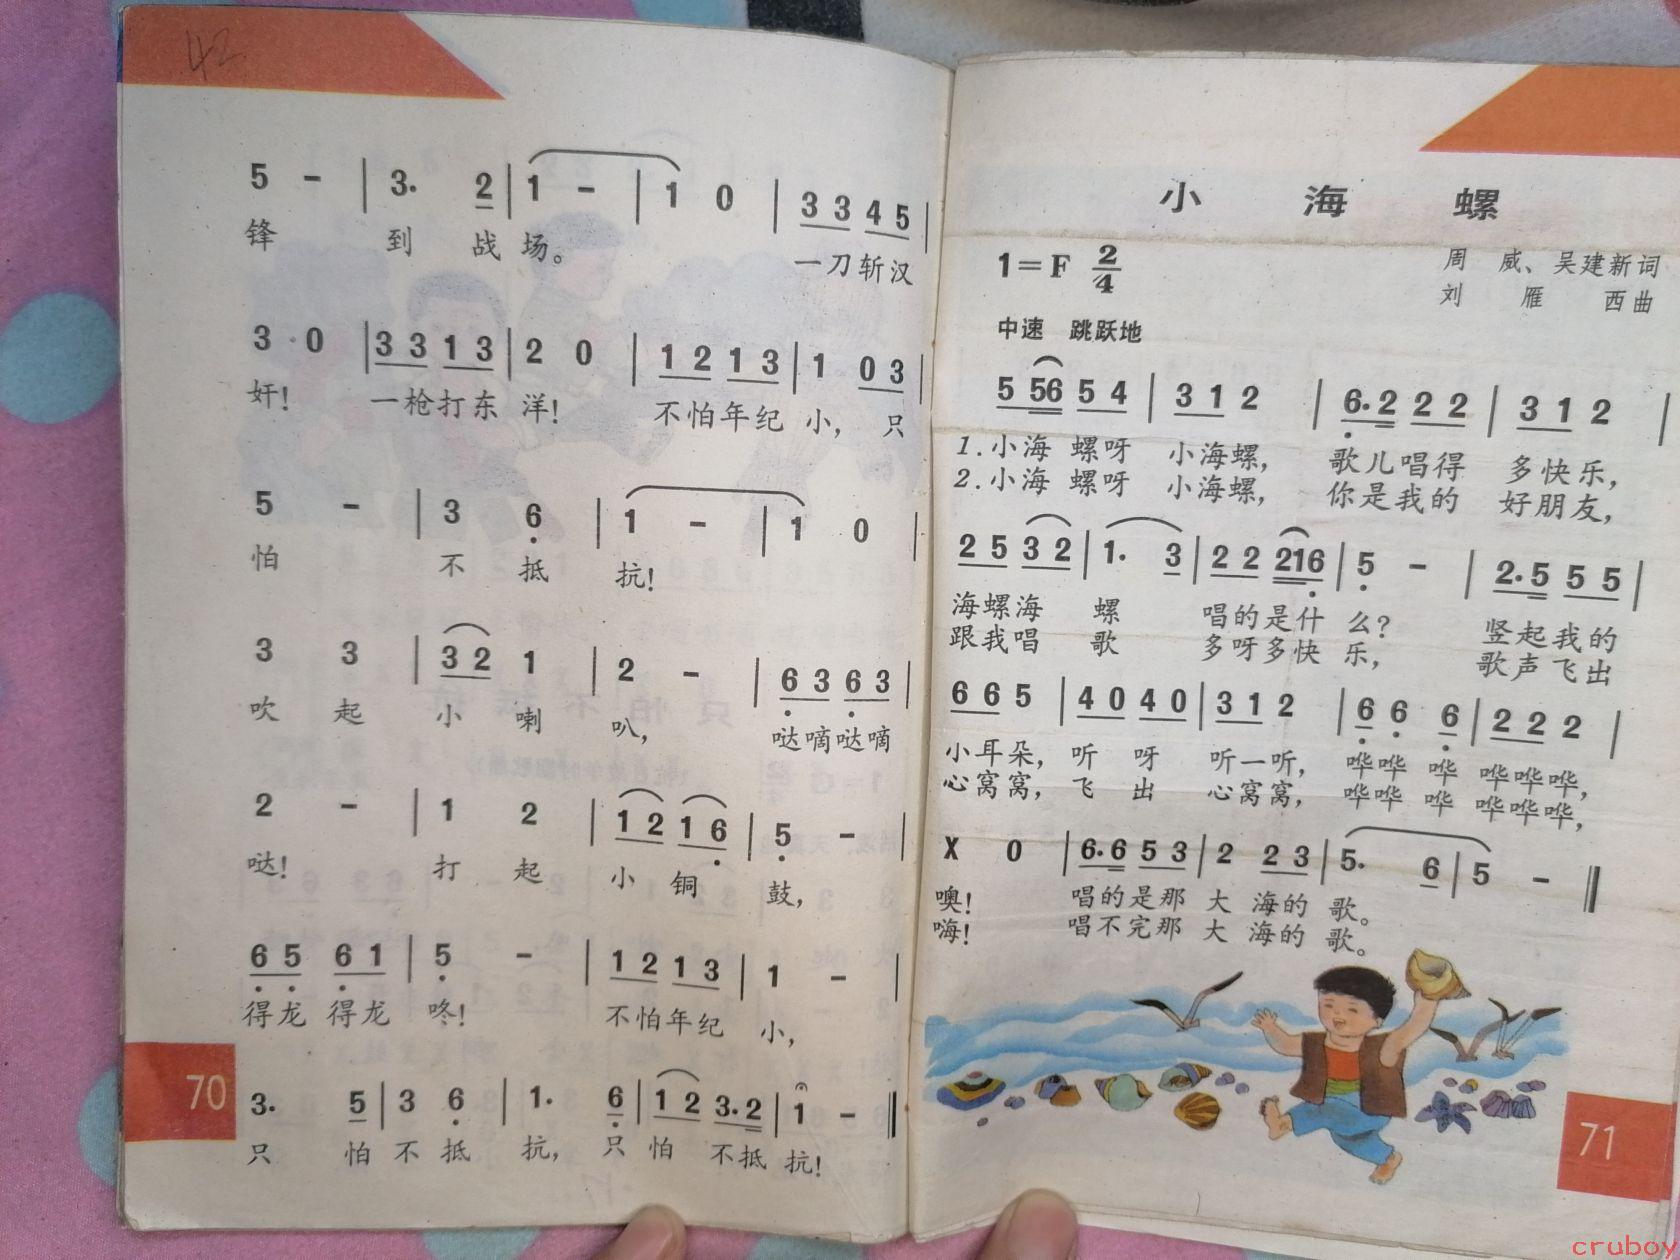 43
5 - | 3. 2 | 1 - | 1 0 | 3 3 4 5 |
锋 到 战 场。 一刀斩汉
3 0 | 3 3 1 3 | 2 0 | 1 2 1 3 | 1 0 3 |
奸! 一枪打东 洋! 不怕年纪 小, 只
5 - | 3 6 | 1 - | 1 0 |
怕 不 抵 抗!
3 3 | 3 2 1 | 2 - | 6 3 6 3 |
吹 起 小 喇 叭, 哒嘀哒嘀
2 - | 1 2 | 1 2 1 6 | 5 - |
哒! 打 起 小 铜 鼓,
6 5 6 1 | 5 - | 1 2 1 3 | 1 - |
得龙 得龙 咚! 不怕年纪 小,
3. 5 | 3 6 | 1. 6 | 1 2 3. 2 | 1 - ‖
只 怕 不 抵 抗, 只 怕 不抵 抗!
70
小 海 螺
1=F 2/4
周 威、吴建新词
刘 雁 西曲
中速 跳跃地
5 56 5 4 | 3 1 2 | 6. 2 2 2 | 3 1 2 |
1.小海 螺呀 小海螺, 歌儿唱得 多快乐,
2.小海 螺呀 小海螺, 你是我的 好朋友,
2 5 3 2 | 1. 3 | 2 2 216 | 5 - | 2. 5 5 5 |
海螺海 螺 唱的是什 么? 竖起我的
跟我唱 歌 多呀多快 乐, 歌声飞出
6 6 5 | 4 0 4 0 | 3 1 2 | 6 6 6 | 2 2 2 |
小耳朵, 听 呀 听一听, 哗哗 哗 哗哗哗,
心窝窝, 飞 出 心窝窝, 哗哗 哗 哗哗哗,
X 0 | 6. 6 5 3 | 2 2 3 | 5. 6 | 5 - ‖
噢! 唱的是那 大 海的 歌。
嗨! 唱不完那 大 海的 歌。
71
cruboy